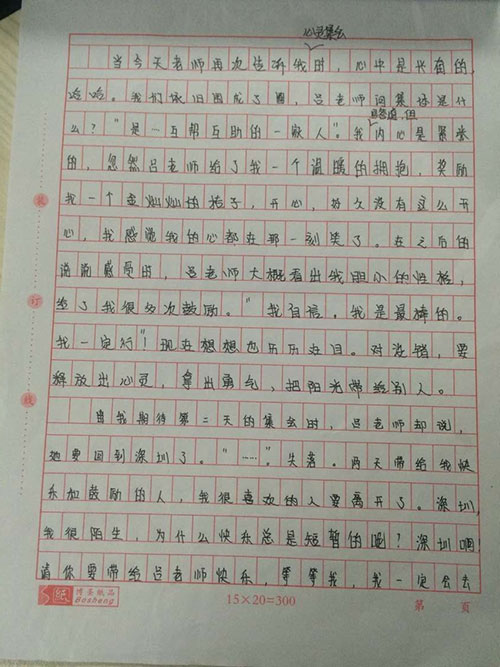 心灵集会
当今天老师再次告诉我时，心中是兴奋的，
哈哈。我们依旧围成了圈，吕老师问集体是什
自答道，但
么？“是…互帮互助的一家人”。我内心是紧张
的，忽然吕老师给了我一个温暖的拥抱，奖励
我一个金灿灿的桔子，开心，好久没有这么开
心，我感觉我的心都在那一刻笑了。在之后的
说说感受时，吕老师大概看出我胆小的性格，
给了我很多次鼓励。“我自信，我是最棒的。
我一定行”！现在想想也历历在目。对没错，要
释放出心灵，拿出勇气，把阳光带给别人。
当我期待第二天的集会时，吕老师却说，
她要回到深圳了。“……”。失落。两天带给我快
乐加鼓励的人，我很喜欢的人要离开了。深圳，
我很陌生，为什么快乐总是短暂的呢？深圳啊！
请你要带给吕老师快乐，等等我，我一定会去
装
订
线
纸
博圣纸品
Bosheng
15×20=300
第 页